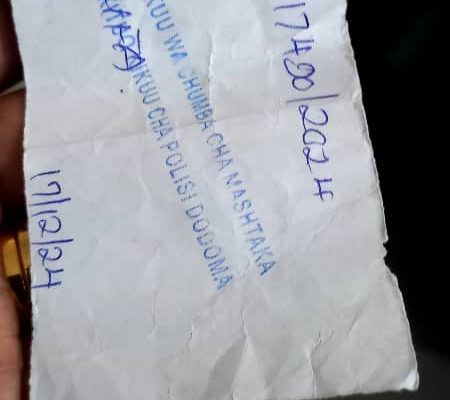 17490/2024
KUU WA CHUMBA CHA MASHTAKA
KUU CHA POLISI DODOMA
17/12/24